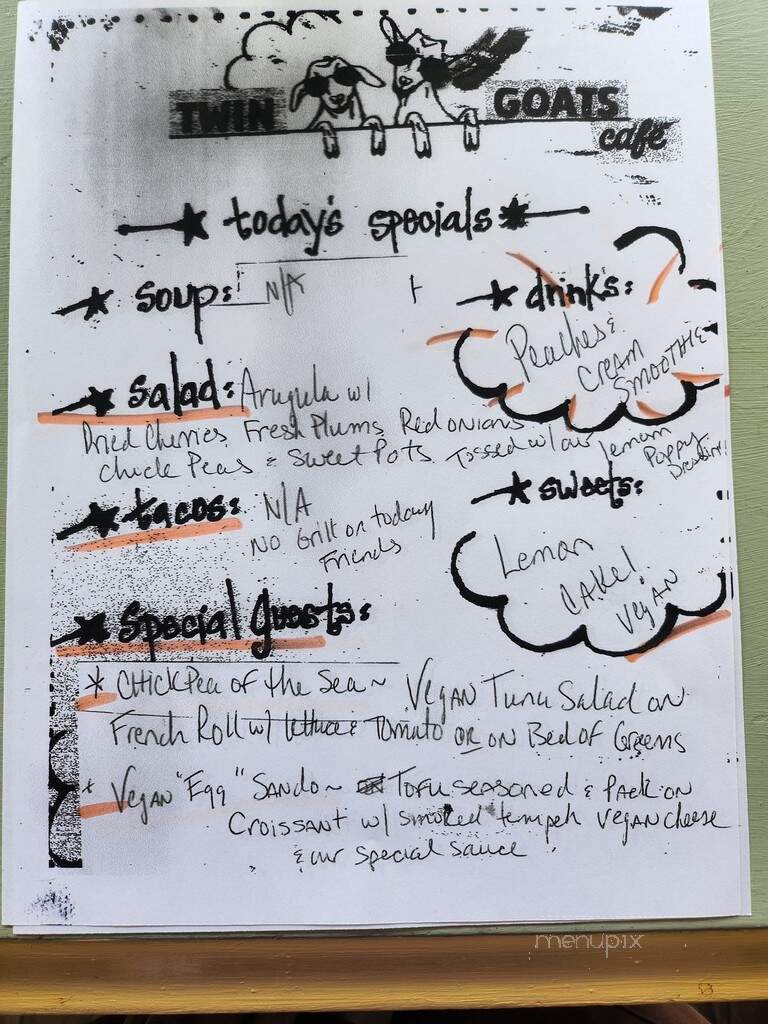 TWIN GOATS
café
today's specials
soup: N/A
drink's:
Peaches &
CREAM
SMOOTHIE
salad: Arugula w/
Dried Cherries, Fresh Plums, Red onions
Chick Peas & Sweet Pots Tossed w/ our lemon
Poppy
Dressing!
tacos: N/A
NO Grill on today
Friends
sweets:
Lemon
CAKE!
VEGAN
Special guests:
* CHICKPea OF the Sea ~ VEGAN Tuna Salad on
French Roll w/ lettuce & Tomato OR ON Bed of Greens
* Vegan "Egg" SANDO ~ TOFU seasoned & PACK ON
Croissant w/ smoked tempeh VEGAN cheese
& our special sauce
menupix